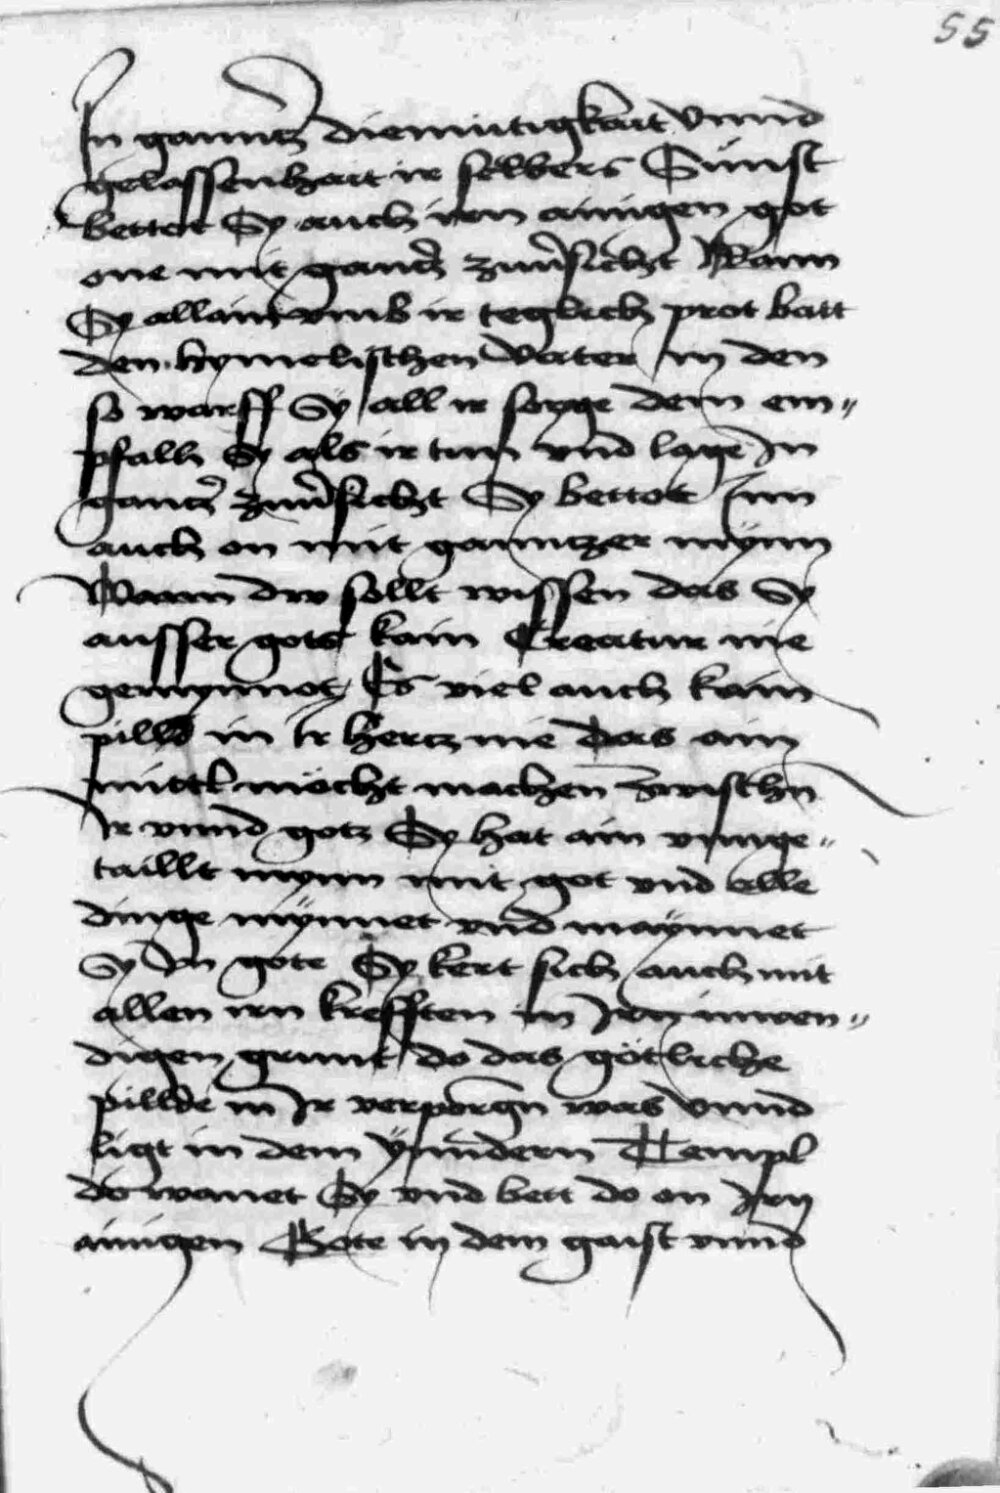 55
In ganntz diemutigkait vnnd
gelassenhait ir selbers Sunst
bettot Sy auch iren ainigen got
one mit gantz zuuersicht Wann
Sy allain vmb ir teglich prot batt
den hymelischen Vater in den
so warff Sy all ir sorge dem em=
pfalh Sy als ir tun vnd lage In
gantz zuuersicht Sy bettot Inn
auch on mit ganntzer mynn
Wann dw sollt wissen das Sy
ausser gots kain Creatur nie
gemynnot Es viel auch kain
pilld in ir hertz nie das ain
mittl möcht machen zwischn
Ir vnnd gotz Sy hat ain vnnge=
taillt mynn mit got vnd alle
dinge mynnet vnd maynnet
Sy In gote Sy kert sich auch mit
allen irn krefften in Iren inwen=
digen grunt do das götliche
pillde in Ir verporgn was vnnd
ligt in dem ynndern Templ
do wanet Sy vnd bett do an Iren
ainigen Gote in dem gaist vnnd